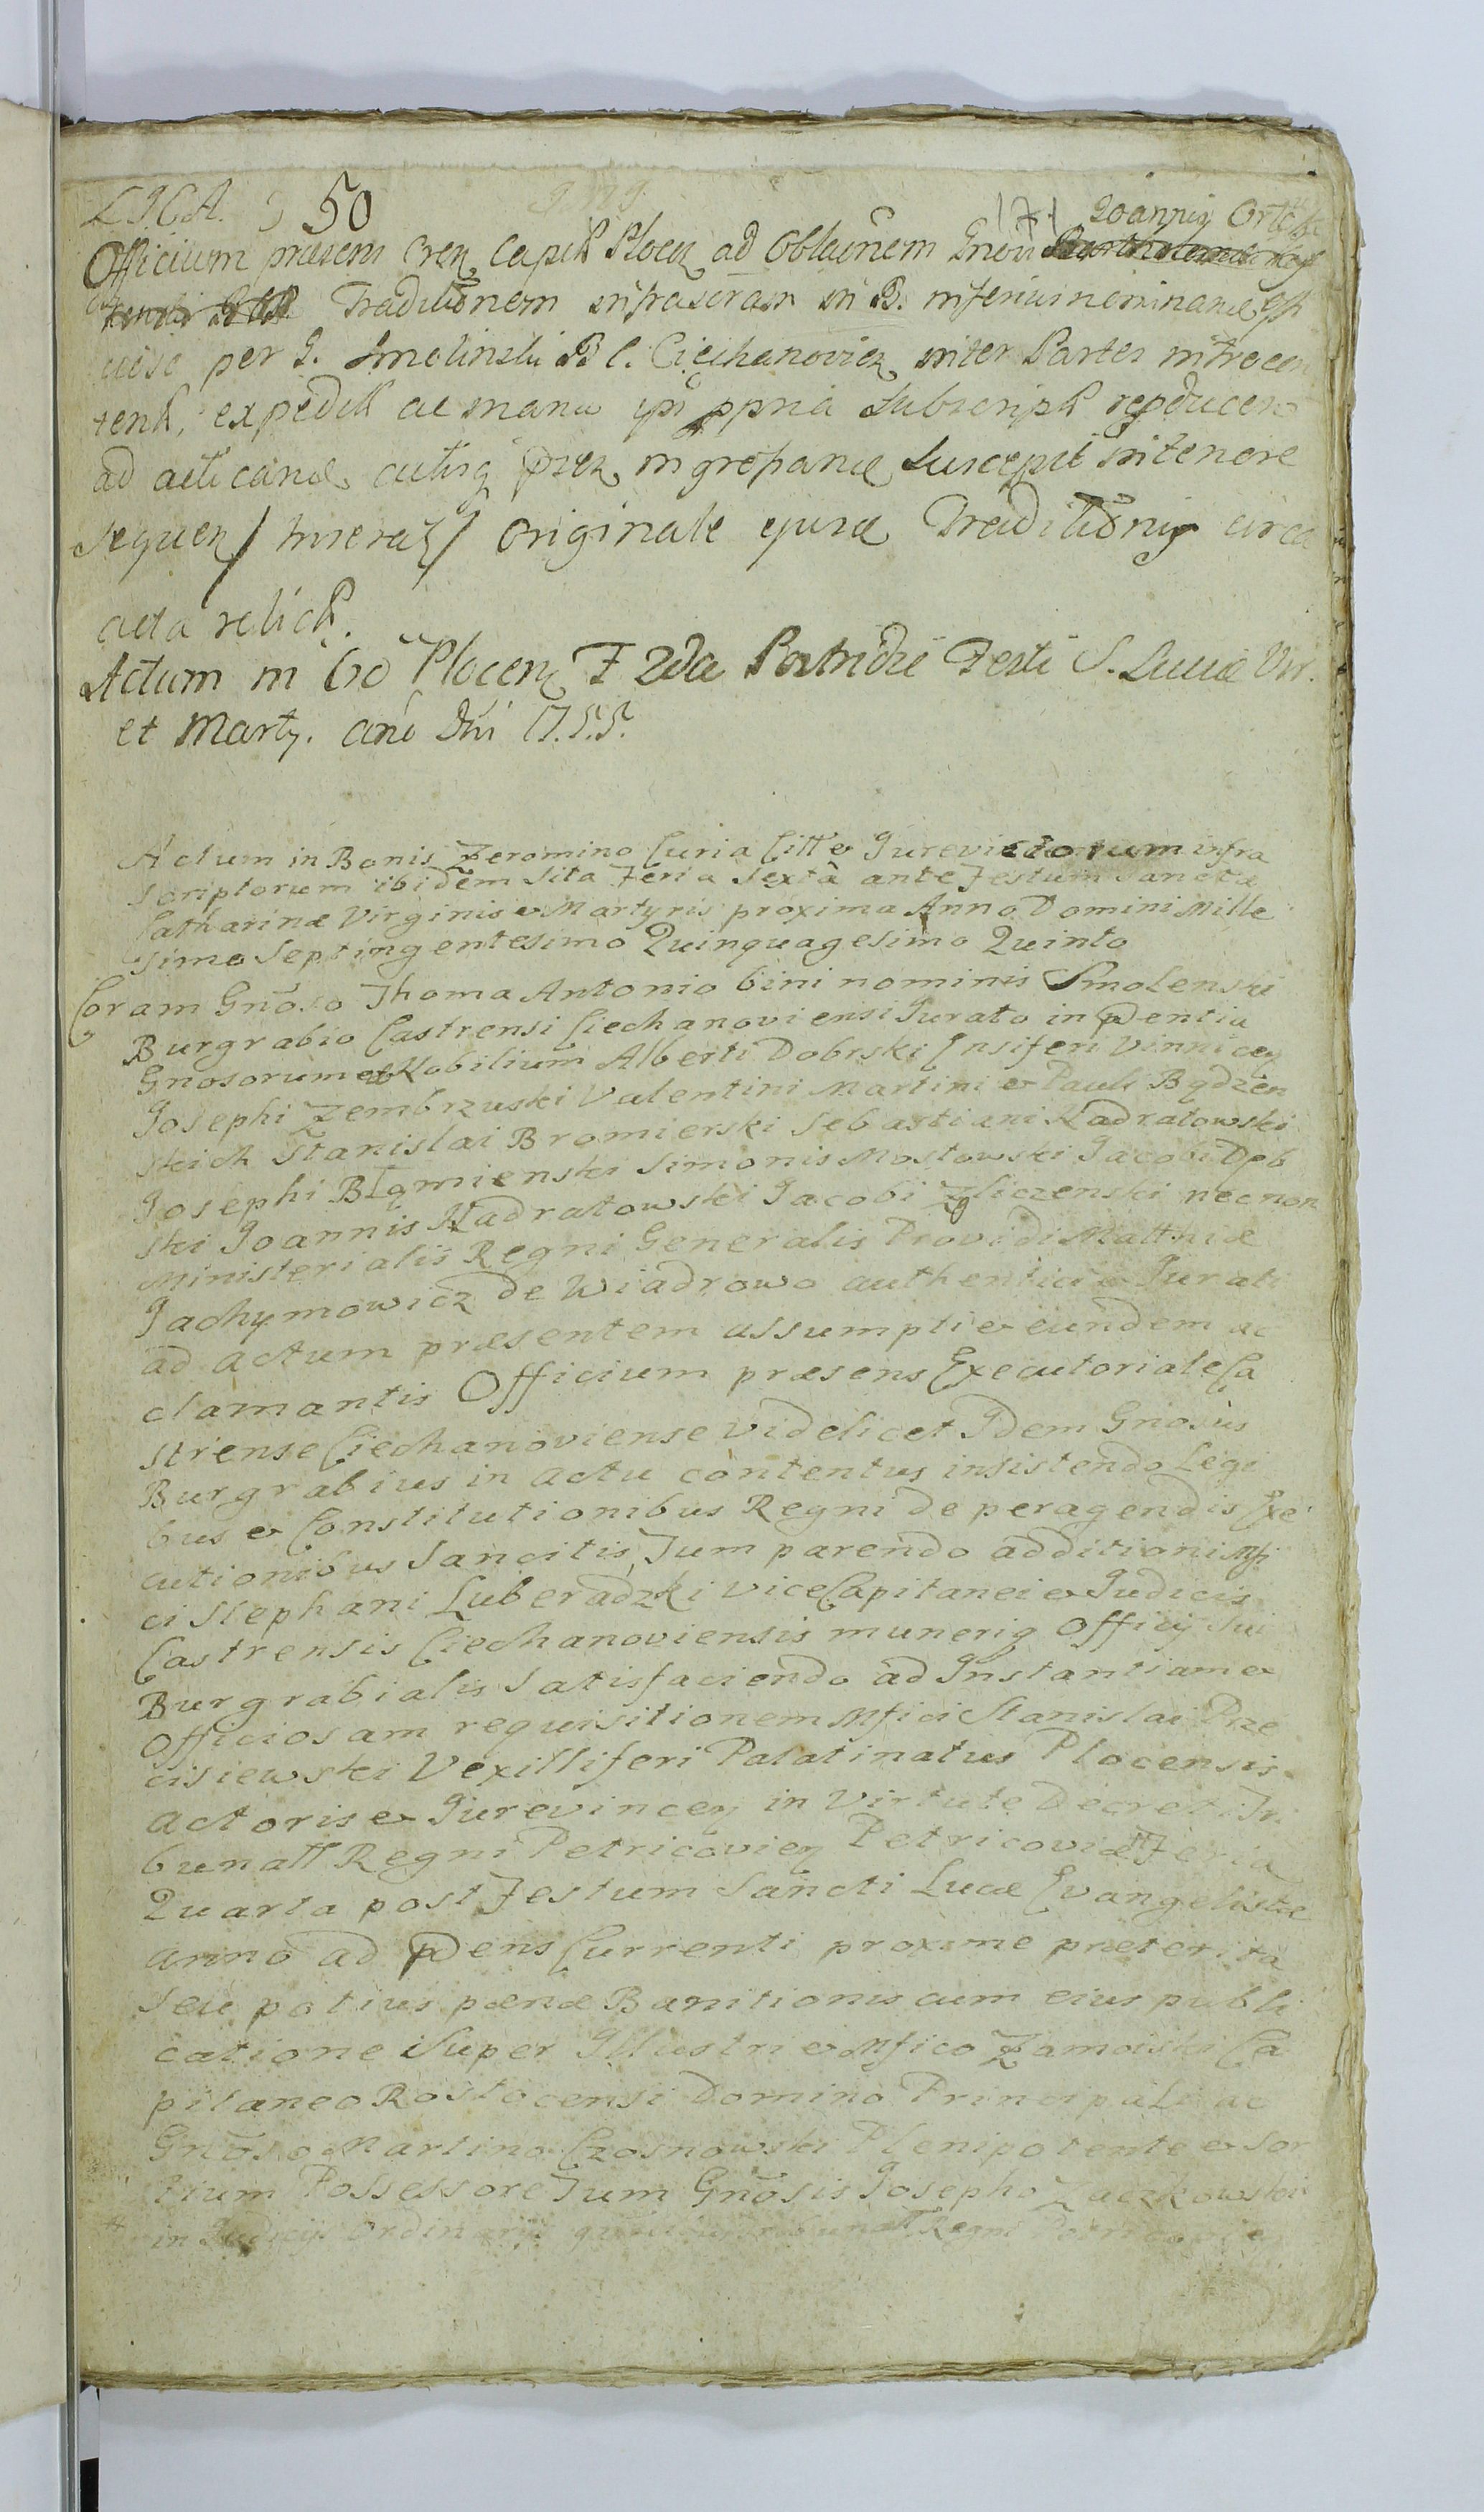 L.I.C.A. 50
171 Joannis
Officium præsens Cren Capitt Plocen ad Oblaõnem Gnõsi
Traditõnem infrascram in B. inferius nominand
per G. Smolinski B C. Ciechanovien inter Partes introcon
tent, expeditt ac manu ipĩ ppria Subscript repducen
ad acticand actisq̃ ingrossand Suscepit in tenore
Sequen / Inserat / Originale ejusd Traditiõnis circa
acta relict.
Actum in Cõ Plocen F 2da Postridie Festi S. Luciæ Vir.
et Marty. anõ Dñi 1755.
Actum in Bonis Zeromino Curia Citt & Jurevictorum infra
scriptorum ibidem Sita Feria Sexta ante Festum Sanctæ
Catharinæ Virginis & Martyris proxima Anno Domini Mille
simo Septingentesimo Quinquagesimo Quinto
Coram Gnõso Thoma Antonio bini nominis Smolenski
Burgrabio Castrensi Ciechanoviensi Jurato in pñentia
Gnosorum et Nobilium Alberti Dobrski Ensiferi Vinnicen
Josephi Zembrzuski Valentini Martini & Pauli Bądzen
skich Stanislai Bromierski Sebastiani Nadratowski
Josephi Błomienski Simonis Mostowski Jacobi Dęb
ski Joannis Nadratowski Jacobi Zgliczenski necnon
Ministerialis Regni Generalis Providi Matthiæ
Jachymowicz de Wiadrowo authentici & Jurati
ad actum præsentem assumpti & eundem ac
clamantis Officium præsens Executoriale Ca
strense Ciechanoviense videlicet Idem Gnosus
Burgrabius in actu contentus insistendo Legi
bus & Constitutionibus Regni de peragendis Exe
cutionibus Sancitis, Tum parendo additioni Mfi
ci Stephani Luberadzki ViceCapitanei & Judicis
Castrensis Ciechanoviensis munerig Officij Sui
Burgrabialis Satisfaciendo ad Instantiam &
Officiosam requisitionem Mfici Stanislai Prze
cisiewski Vexilliferi Palatinatus Plocensis
Actoris & Jurevincen in Virtute Decreti Tri
bunatt Regni Petricovien Petricoviæ # Feria
Quarta post Festum Sancti Lucæ Evangelistæ
anno ad pñens Currenti proxime præterita
Seu potius pænæ Banitionis cum eius publi
catione Super Illustri & Mfico Zamoiski Ca
pitaneo Rostocensi Domino Principali ac
Gnõso Martino Czosnowski Plenipotente & Sor
tium Possessore Tum Gnõsis Josepho Zaczkowski
# in Judicijs Ordinarijs Regni